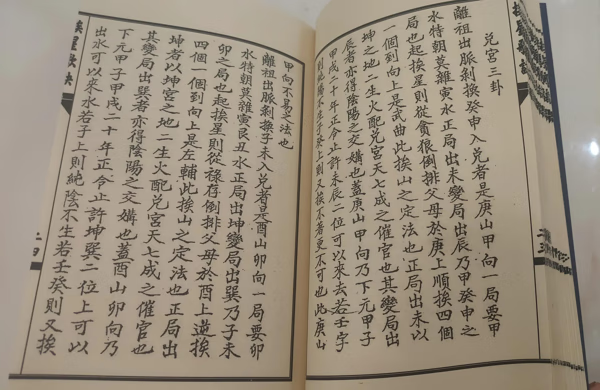 兌宮三卦
離祖出脈剝換癸申入兌者是庚山甲向一局要甲
水特朝莫雜寅水正局出未變局出辰乃甲癸申之
局也起挨星則從貪狼倒排父母於庚上順挨四個
一個到向上是武曲此挨山之定法也正局出未以
坤之地二生火配兌宮天七成之催官也其變局出
辰者亦得陰陽之交媾也蓋庚山甲向乃下元甲子
甲戌二十年正令止許未辰二位可以來去若壬字
則純陰不生子癸上則又挨不著更不可也此庚山
甲向不易之法也
離祖出脈剝換子未入兌者是酉山卯向一局要卯
水特朝莫雜寅艮丑水正局出坤變局出巽乃子未
卯之局也起挨星則從祿存倒排父母於酉上逆挨
四個一個到向上是左輔此挨山之定法也正局出
坤者以坤宮之地二生火配兌宮天七成之催官也
其變局出巽者亦得陰陽之交媾也蓋酉山卯向乃
下元甲子甲戌二十年正令止許坤巽二位上可以
出水可以來水若子上則純陰不生若壬癸則又挨
挨星歌訣
二四